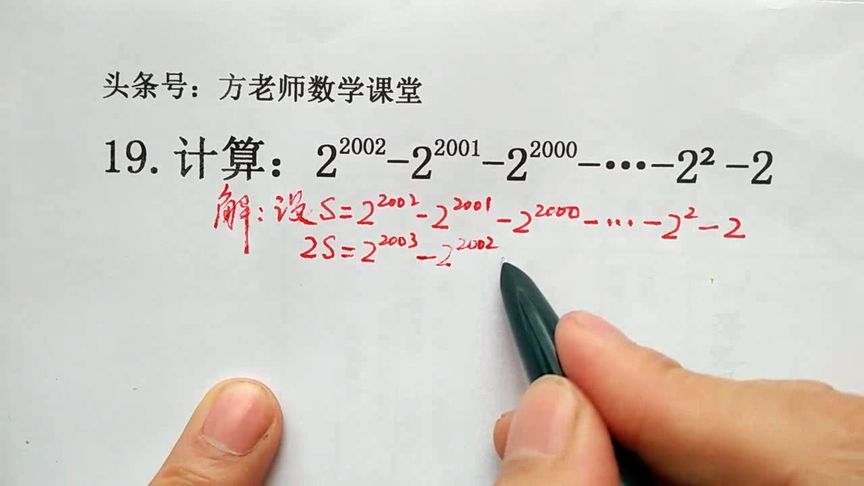 头条号：方老师数学课堂
19. 计算：2²⁰⁰²-2²⁰⁰¹-2²⁰⁰⁰-···-2²-2
解：设S=2²⁰⁰²-2²⁰⁰¹-2²⁰⁰⁰-···-2²-2
2S=2²⁰⁰³-2²⁰⁰²